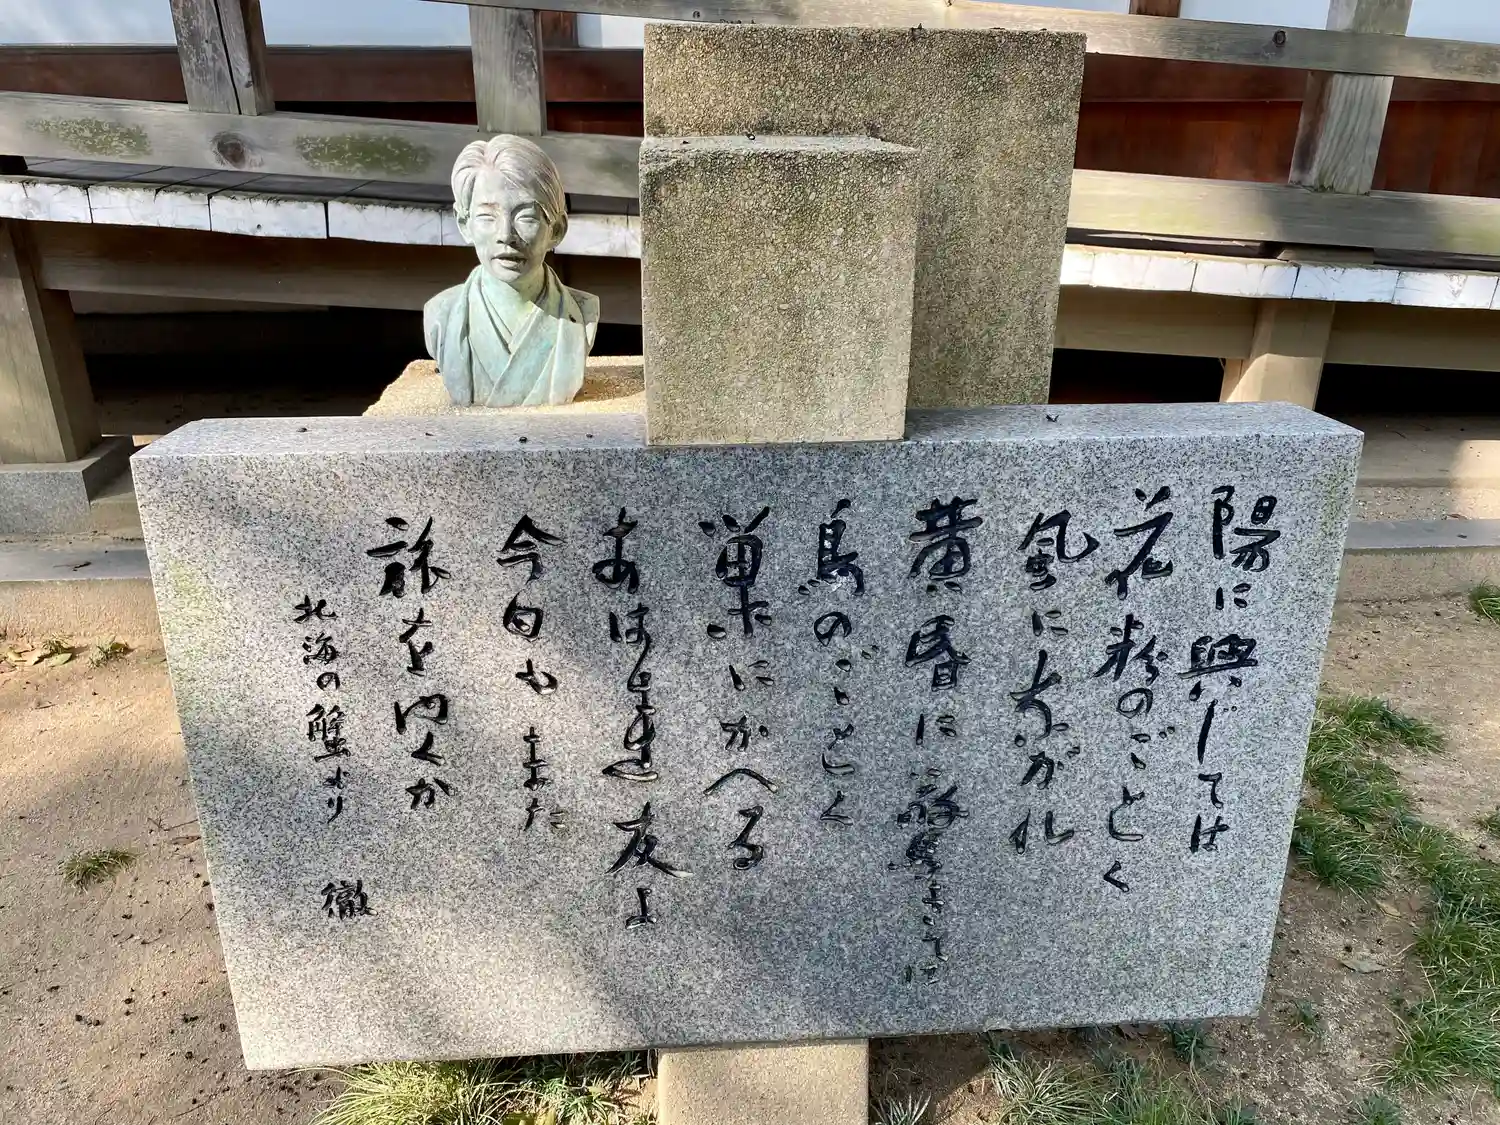 陽に興じては
花粉のごとく
風にながれ
黄昏に驚きては
鳥のごとく
巣にかへる
あはれ友よ
今日もまた
旅をゆくか
北海の蟹より 徹